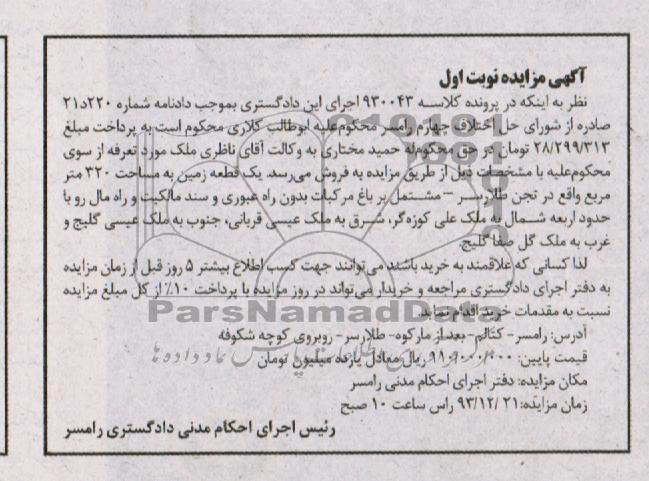 آگهی مزایده نوبت اول
نظر به اینکه در پرونده کلاسه ۹۳۰۰۴۳ اجرای این دادگستری بموجب دادنامه شماره ۲۲۰د۲۱
صادره از شورای حل اختلاف چهارم رامسر محکوم‌علیه ابوطالب کلاری محکوم است به پرداخت مبلغ
۲۸/۲۹۹/۳۱۳ تومان در حق محکوم‌له حمید مختاری به وکالت آقای ناظری ملک مورد تعرفه از سوی
محکوم‌علیه با مشخصات ذیل از طریق مزایده به فروش می‌رسد. یک قطعه زمین به مساحت ۳۲۰ متر
مربع واقع در تجن طلارسر – مشتمل بر باغ مرکبات بدون راه عبوری و سند مالکیت و راه مال رو با
حدود اربعه شمال به ملک علی کوزه‌گر، شرق به ملک عیسی قربانی، جنوب به ملک عیسی گلیج و
غرب به ملک گل صفا گلیج.
لذا کسانی که علاقمند به خرید باشند می‌توانند جهت کسب اطلاع بیشتر ۵ روز قبل از زمان مزایده
به دفتر اجرای دادگستری مراجعه و خریدار می‌تواند در روز مزایده با پرداخت ۱۰٪ از کل مبلغ مزایده
نسبت به مقدمات خرید اقدام نماید.
ParsNamadData
آدرس: رامسر- کتالم- بعد از مارکوه- طلارسر- روبروی کوچه شکوفه
قیمت پایین: ۱۱۰/۰۰۰/۰۰۰ ریال معادل یازده میلیون تومان
مکان مزایده: دفتر اجرای احکام مدنی رامسر
زمان مزایده: ۹۳/۱۲/۲۱ راس ساعت ۱۰ صبح
رئیس اجرای احکام مدنی دادگستری رامسر